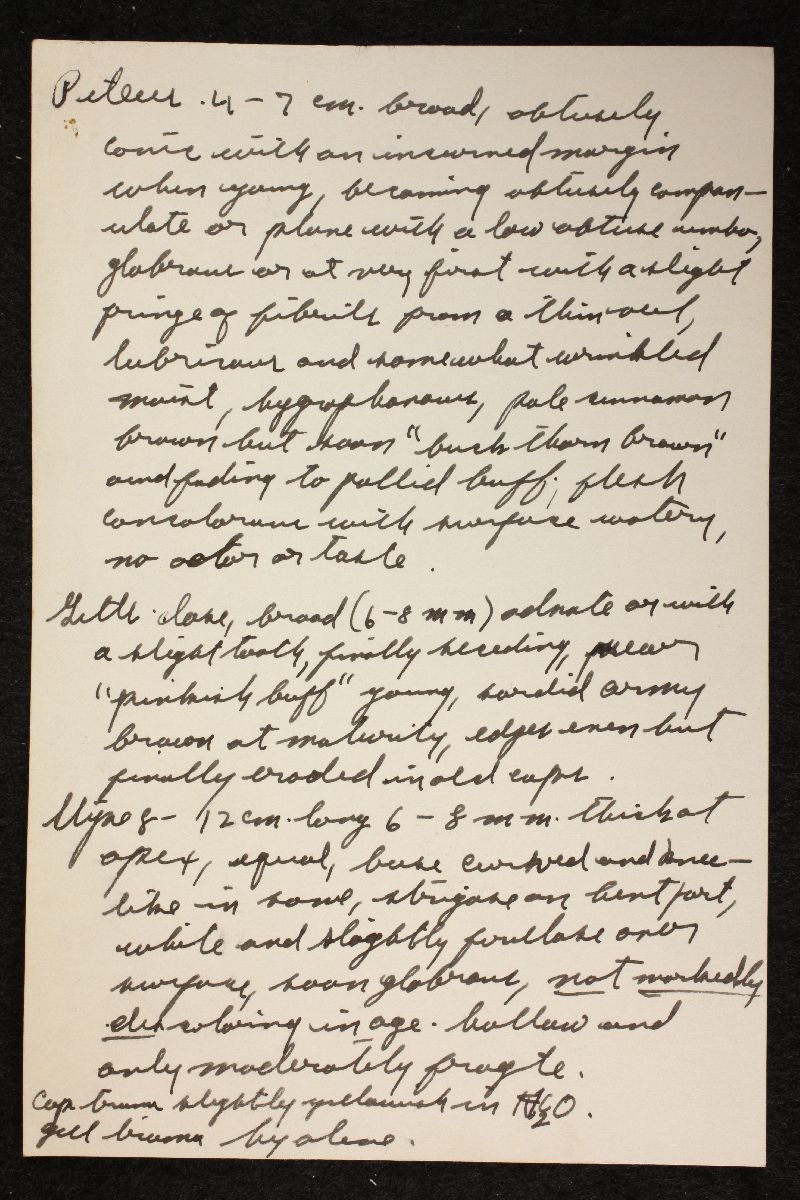 Pileus 4 - 7 cm. broad, obtusely
conic with an incurved margin
when young, becoming obtusely campan-
ulate or plane with a low obtuse umbo,
glabrous or at very first with a slight
fringe of fibrils from a thin veil,
lubricous and somewhat wrinkled
moist, hygrophanous, pale cinnamon
brown but soon "buckthorn brown"
and fading to pallid buff; flesh
concolorous with surface watery,
no odor or taste.
Gills close, broad (6-8 mm) adnate or with
a slight tooth, finally seceding, near
"pinkish buff" young, sordid army
brown at maturity, edges even but
finally eroded in old caps.
Stipe 8 - 12 cm. long 6 - 8 mm. thick at
apex, equal, base curved and knee-
like in some, strigose on bent part,
white and slightly furfurose over
surface, soon glabrous, not markedly
discoloring in age. hollow and
only moderately fragile.
Cap trama slightly yellowish in H2O.
gill trama hyaline.